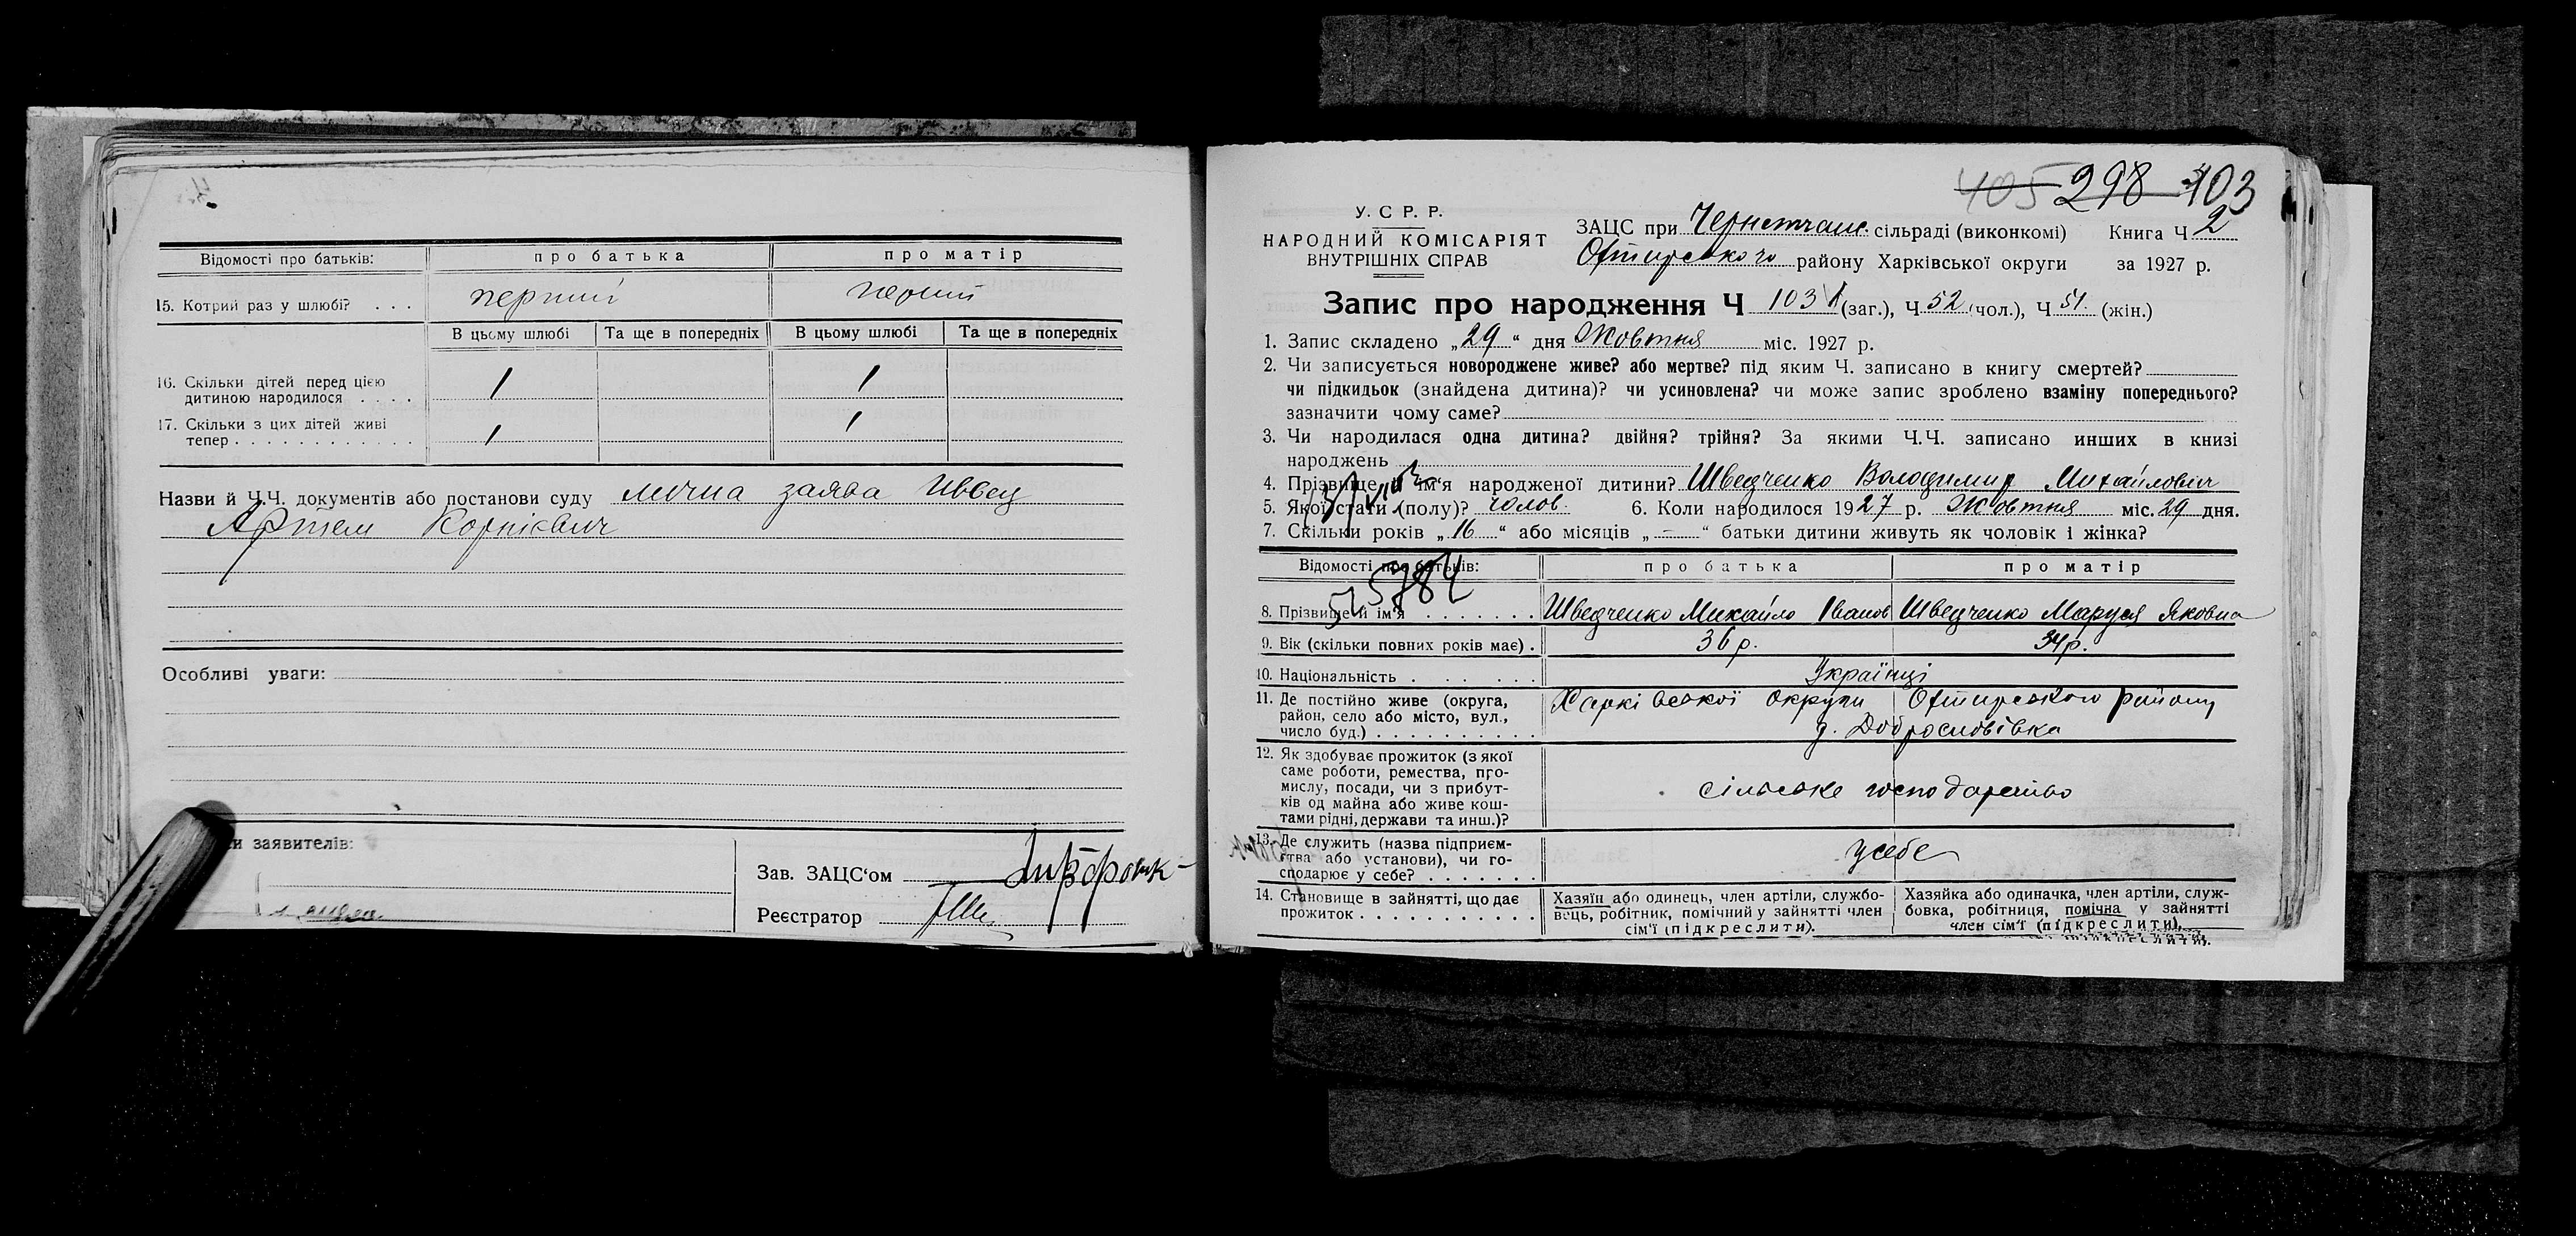 Відомості про батьків: про батька про матір
15. Котрий раз у шлюбі? . . . перший перший
В цьому шлюбі Та ще в попередніх В цьому шлюбі Та ще в попередніх
16. Скільки дітей перед цією
дитиною народилося . . . . 1 1
17. Скільки з цих дітей живі
тепер . . . . . . . . . . . . 1 1
Назви й Ч.Ч. документів або постанови суду заява Швец
Артем Корнієвич
Особливі уваги:
и заявителів:
Зав. ЗАЦС‘ом
Реєстратор
405 298 403
У. С. Р. Р.
НАРОДНИЙ КОМІСАРІЯТ
ВНУТРІШНІХ СПРАВ
ЗАЦС при сільраді (виконкомі) Книга Ч 2
Охтирського району Харківської округи за 1927 р.
Запис про народження Ч 103 (заг.), Ч 52 (чол.), Ч 51. (жін.)
1. Запис складено „29“ дня Жовтня міс. 1927 р.
2. Чи записується новороджене живе? або мертве? під яким Ч. записано в книгу смертей?
чи підкидьок (знайдена дитина)? чи усиновлена? чи може запис зроблено взаміну попереднього?
зазначити чому саме?
3. Чи народилася одна дитина? двійня? трійня? За якими Ч.Ч. записано инших в книзі
народжень
4. Прізвище й ім‘я народженої дитини? Шведченко Володимир Михайлович
5. Якої стати (полу)? чолов. 6. Коли народилося 1927 р. Жовтня міс. 29 дня.
7. Скільки років „16“ або місяців „—“ батьки дитини живуть як чоловік і жінка?
Відомості про батьків: про батька про матір
8. Прізвище й ім‘я . . . . . . . Шведченко Михайло Іванов Шведченко Маруся Яковна
9. Вік (скільки повних років має) . 36 р. 34 р.
10. Національність . . . . . . Українці
11. Де постійно живе (округа,
район, село або місто, вул.,
число буд.) . . . . . . . . . . Харківської округи Охтирського району
д. Доброславівка
12. Як здобуває прожиток (з якої
саме роботи, ремества, про-
мислу, посади, чи з прибут-
ків од майна або живе кош-
тами рідні, держави та инш.)? сільське господарство
13. Де служить (назва підприєм-
ства або установи), чи го-
сподарює у себе? . . . . . . . у себе
14. Становище в зайнятті, що дає
прожиток . . . . . . . . . . .
Хазяїн або одинець, член артіли, службо-
вець, робітник, помічний у зайнятті член
сім‘ї (підкреслити).
Хазяйка або одиначка, член артіли, служ-
бовка, робітниця, помічна у зайнятті
член сім‘ї (підкреслити).